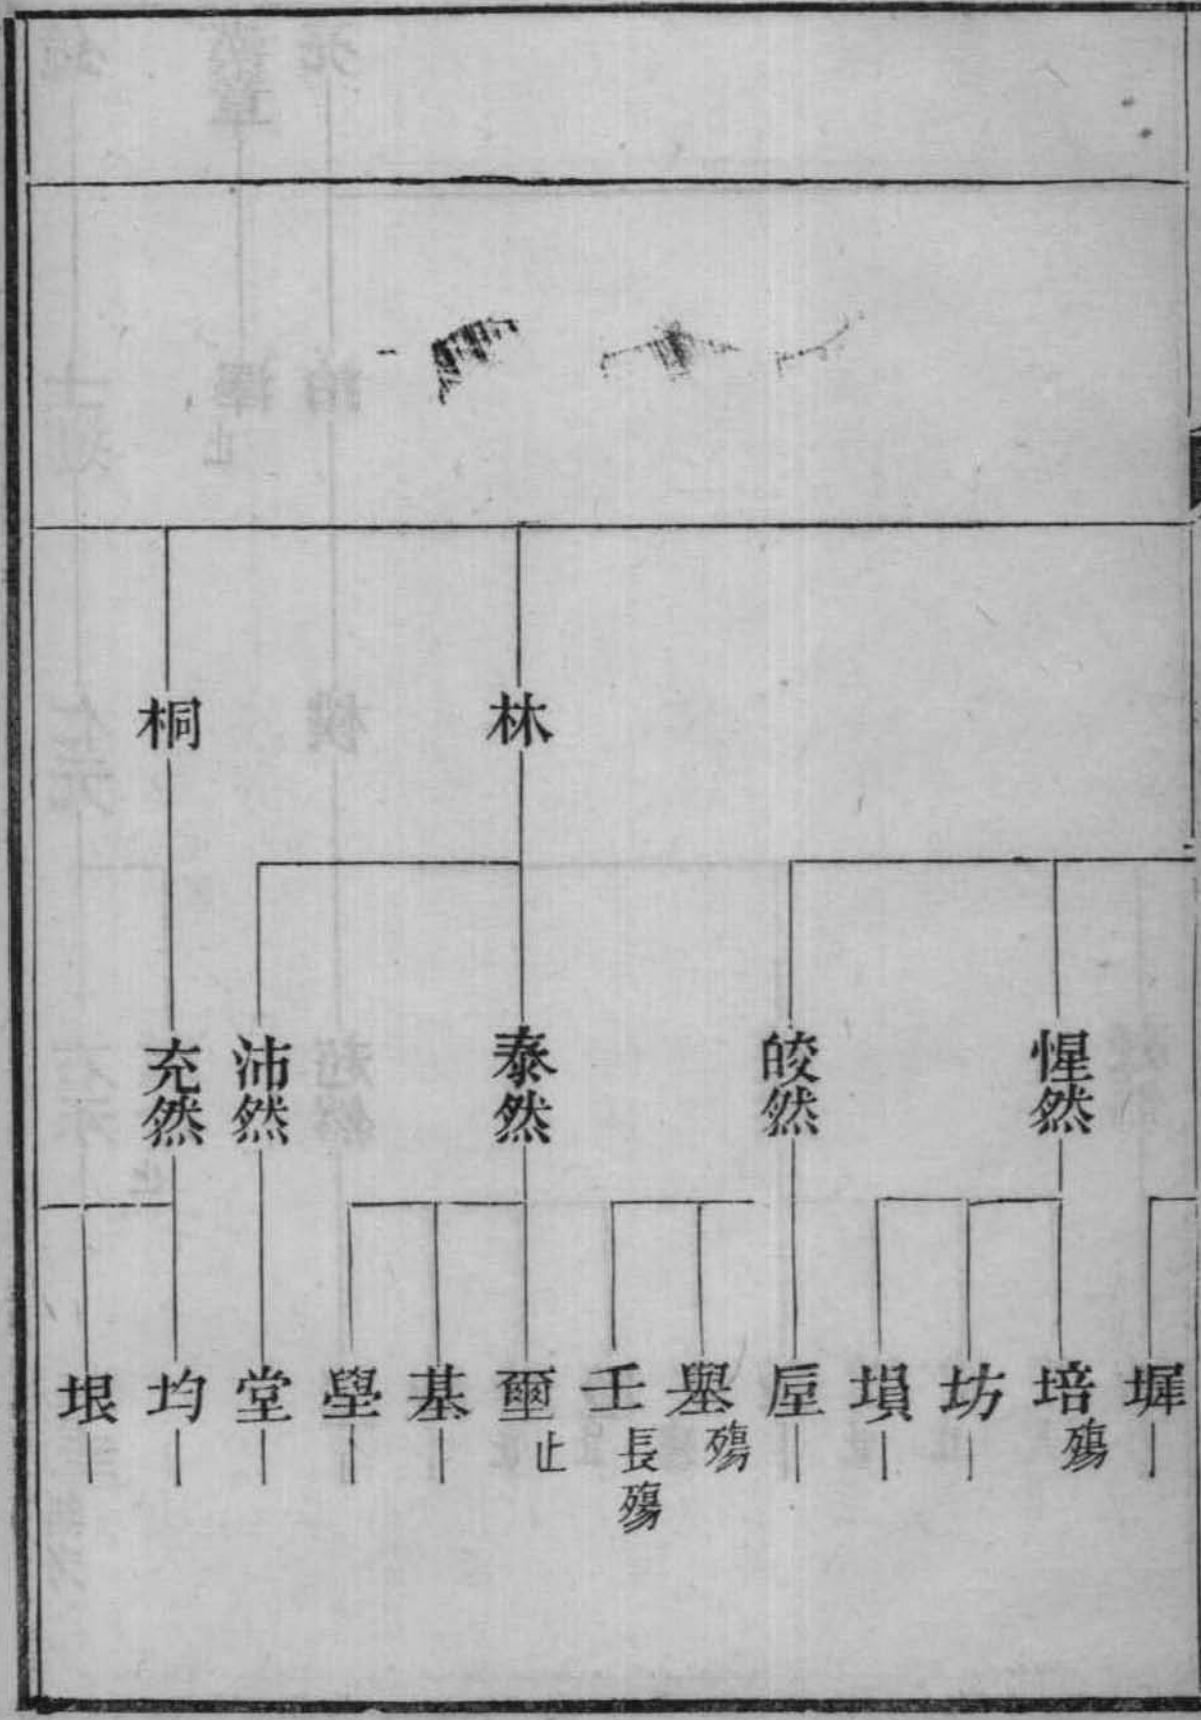 林
桐
惺然
皎然
泰然
沛然
充然
墀
培殤
坊
塤
垕
壆殤
壬長殤
壐止
基
壆
堂
均
垠